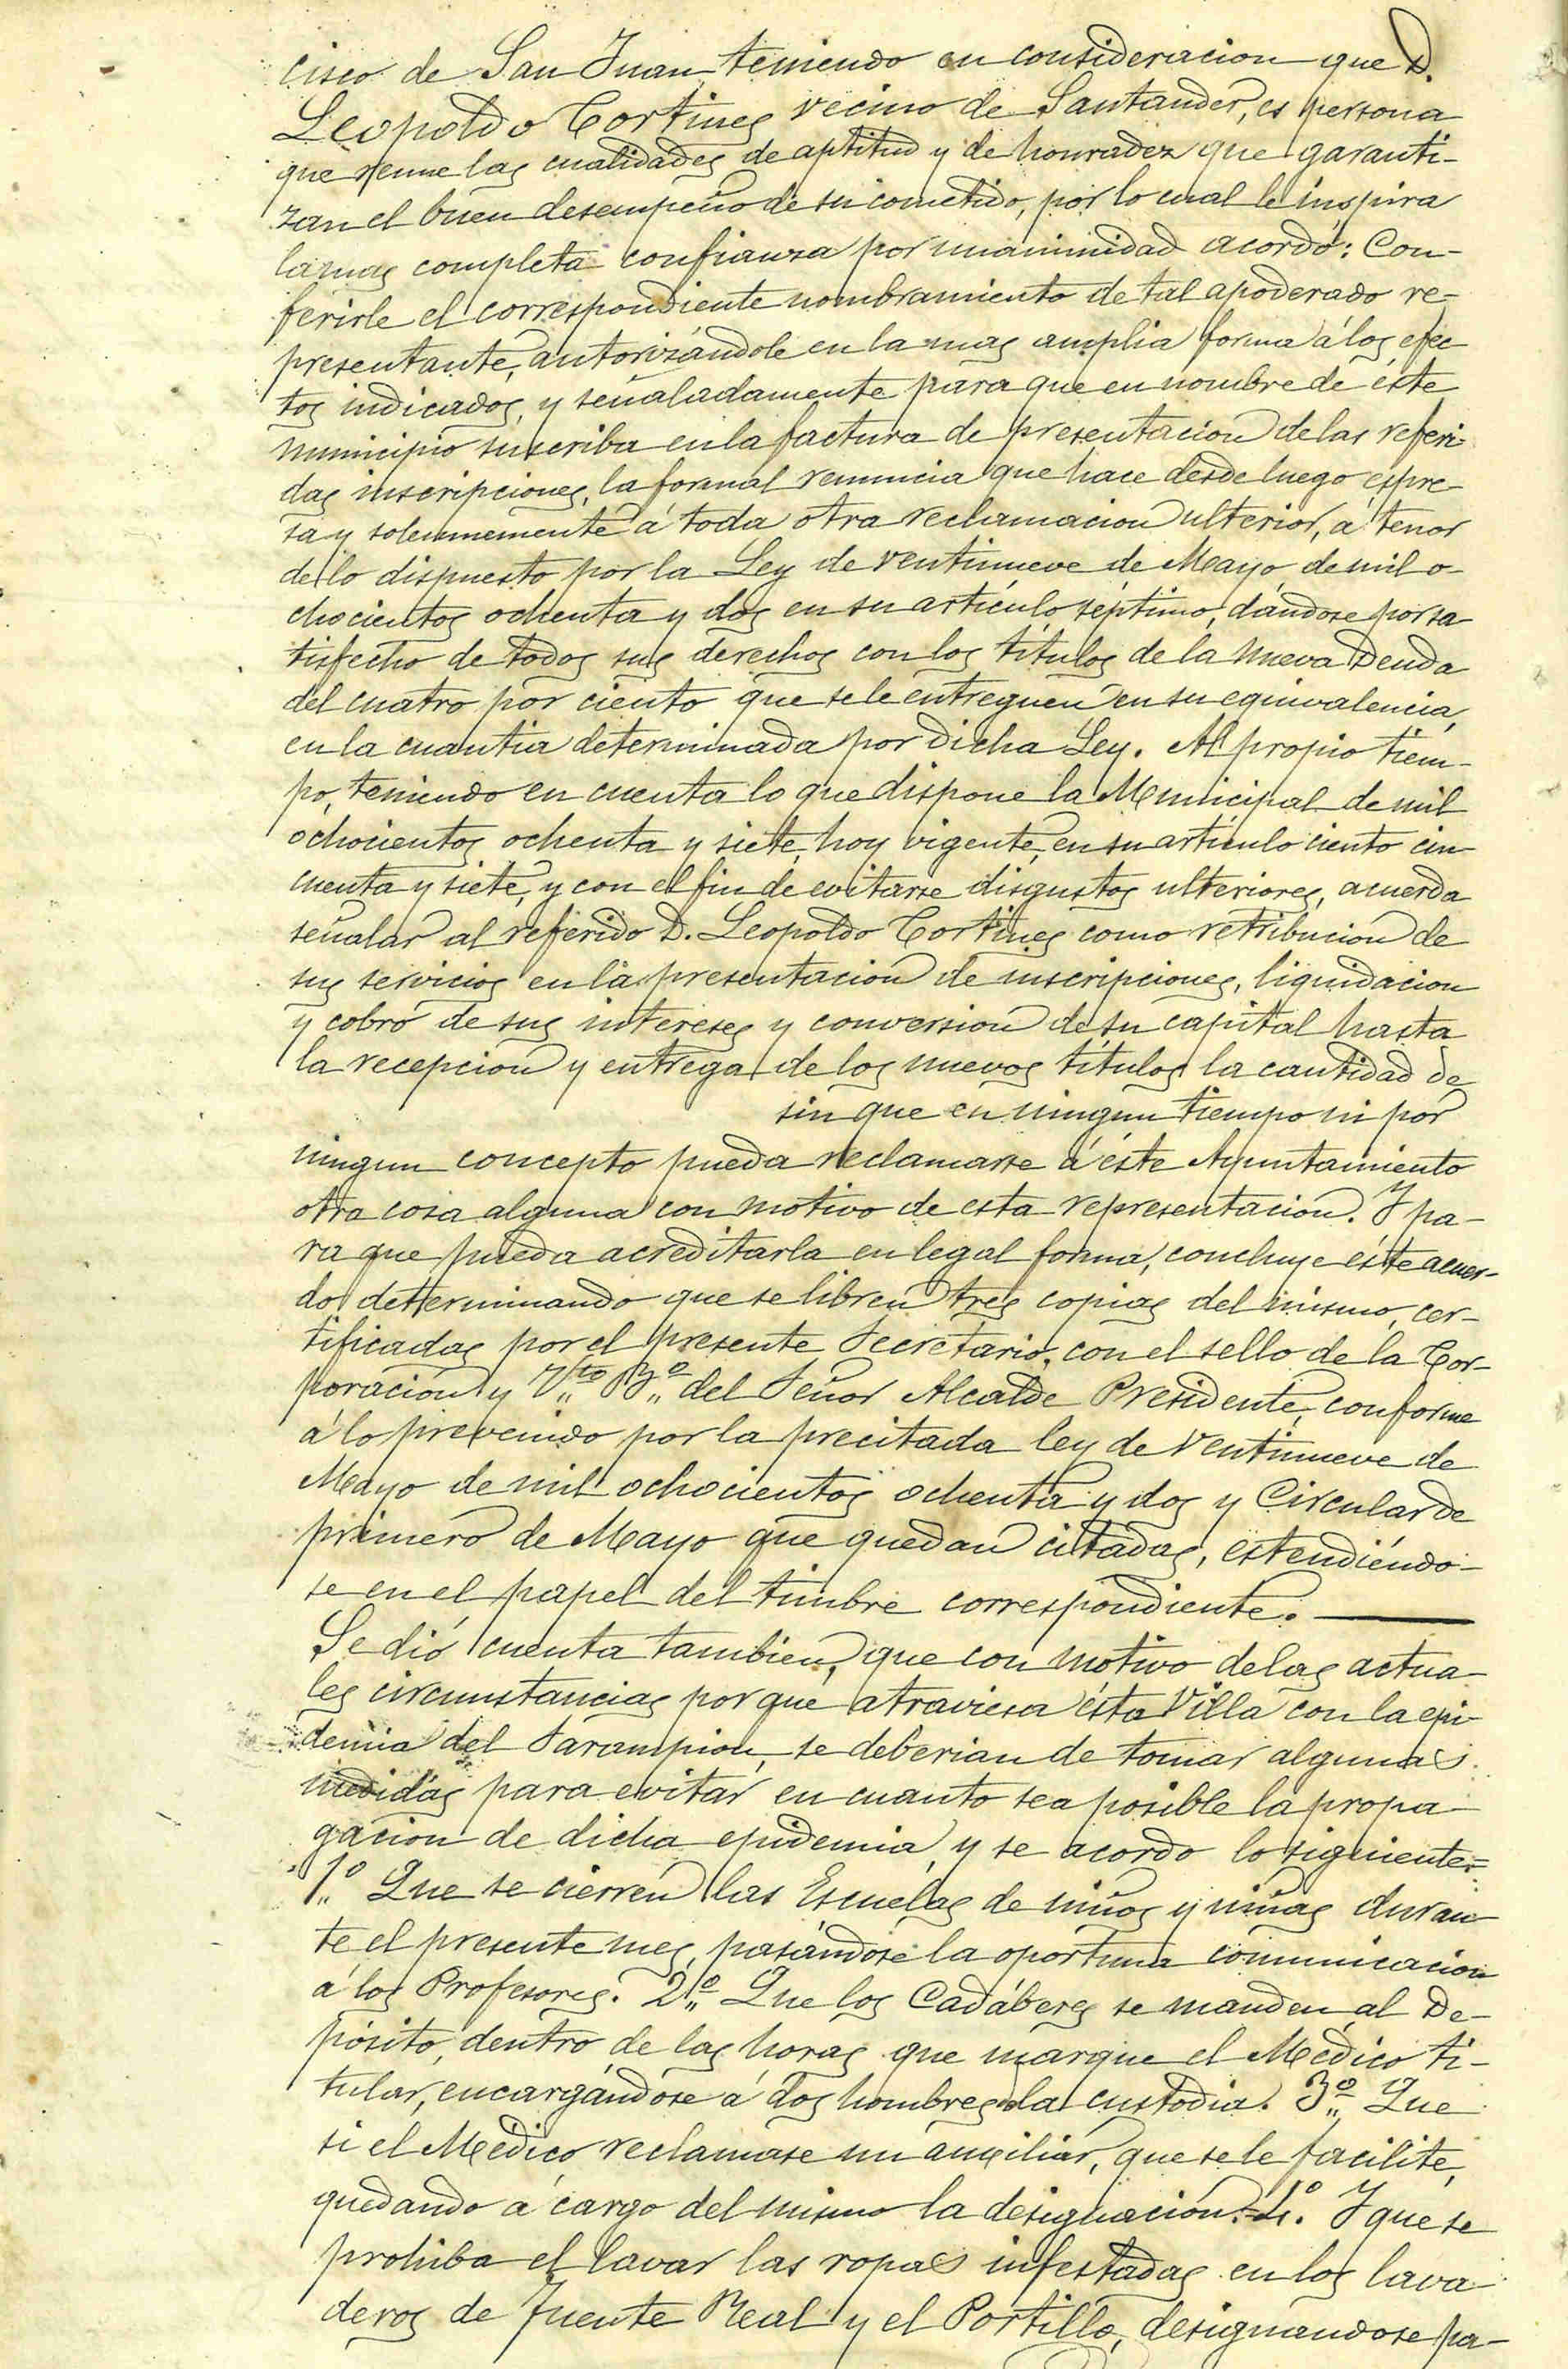 cisco de San Juan, teniendo en consideracion que D.
Leopoldo Cortines vecino de Santander, es persona
que reune las cualidades de aptitud y de honradez que garanti-
zan el buen desempeño de su cometido, por lo cual le inspira
la mas completa confianza por unanimidad acordó: Con-
ferirle el correspondiente nombramiento de tal apoderado re-
presentante, autorizándole en la mas amplia forma á los efec
tos indicados, y señaladamente para que en nombre de éste
municipio suscriba en la factura de presentacion de las referi-
das inscripciones, la formal renuncia que hace desde luego espre-
sa y solemnemente á toda otra reclamacion ulterior, á tenor
de lo dispuesto por la Ley de ventinueve de Mayo de mil o-
chocientos ochenta y dos en su artículo septimo, dándose por sa
tisfecho de todos sus derechos con los títulos de la nueva Deuda
del cuatro por ciento que se le entreguen en su equivalencia,
en la cuantia determinada por dicha Ley. Al propio tiem-
po, teniendo en cuenta lo que dispone la Municipal de mil
ochocientos ochenta y siete, hoy vigente, en su articulo ciento cin-
cuenta y siete, y con el fin de evitarse disgustos ulteriores, acuerda
señalar al referido D. Leopoldo Cortines como retribucion de
sus servicios en la presentacion de inscripciones, liquidacion
y cobro de sus intereses y conversion de su capital hasta
la recepcion y entrega de los nuevos títulos la cantidad de
sin que en ningun tiempo ni por
ningun concepto pueda reclamarse á éste Ayuntamiento
otra cosa alguna con motivo de esta representacion. Y pa-
ra que pueda acreditarla en legal forma, concluye éste acuer-
do determinando que se libren tres copias del mismo, cer-
tificadas por el presente Secretario, con el sello de la Cor-
poracion y Vto Bº del Señor Alcalde Presidente, conforme
á lo prevenido por la precitada ley de ventinueve de
Mayo de mil ochocientos ochenta y dos y Circular de
primero de Mayo que quedan citadas, estendiéndo-
se en el papel del timbre correspondiente.
Se dió cuenta tambien, que con motivo de las actua-
les circunstancias por que atraviesa ésta Villa con la epi-
demia del Sarampion, se deberian de tomar algunas
medidas para evitar en cuanto sea posible la propa-
gacion de dicha epidemia, y se acordo lo siguiente=
1º Que se cierren las Escuelas de niños y niñas duran-
te el presente mes, pasándose la oportuna comunicacion
á los Profesores. 2º Que los Cadáberes se manden al De-
pósito, dentro de las horas que marque el Médico ti-
tular, encargándose á dos hombres la custodia. 3º Que
si el Médico reclamase un auxiliar, que se le facilite,
quedando á cargo del mismo la designacion. 4º Y que se
prohiba el lavar las ropas infestadas en los lava-
deros de Fuente Real y el Portillo, designandose pa-